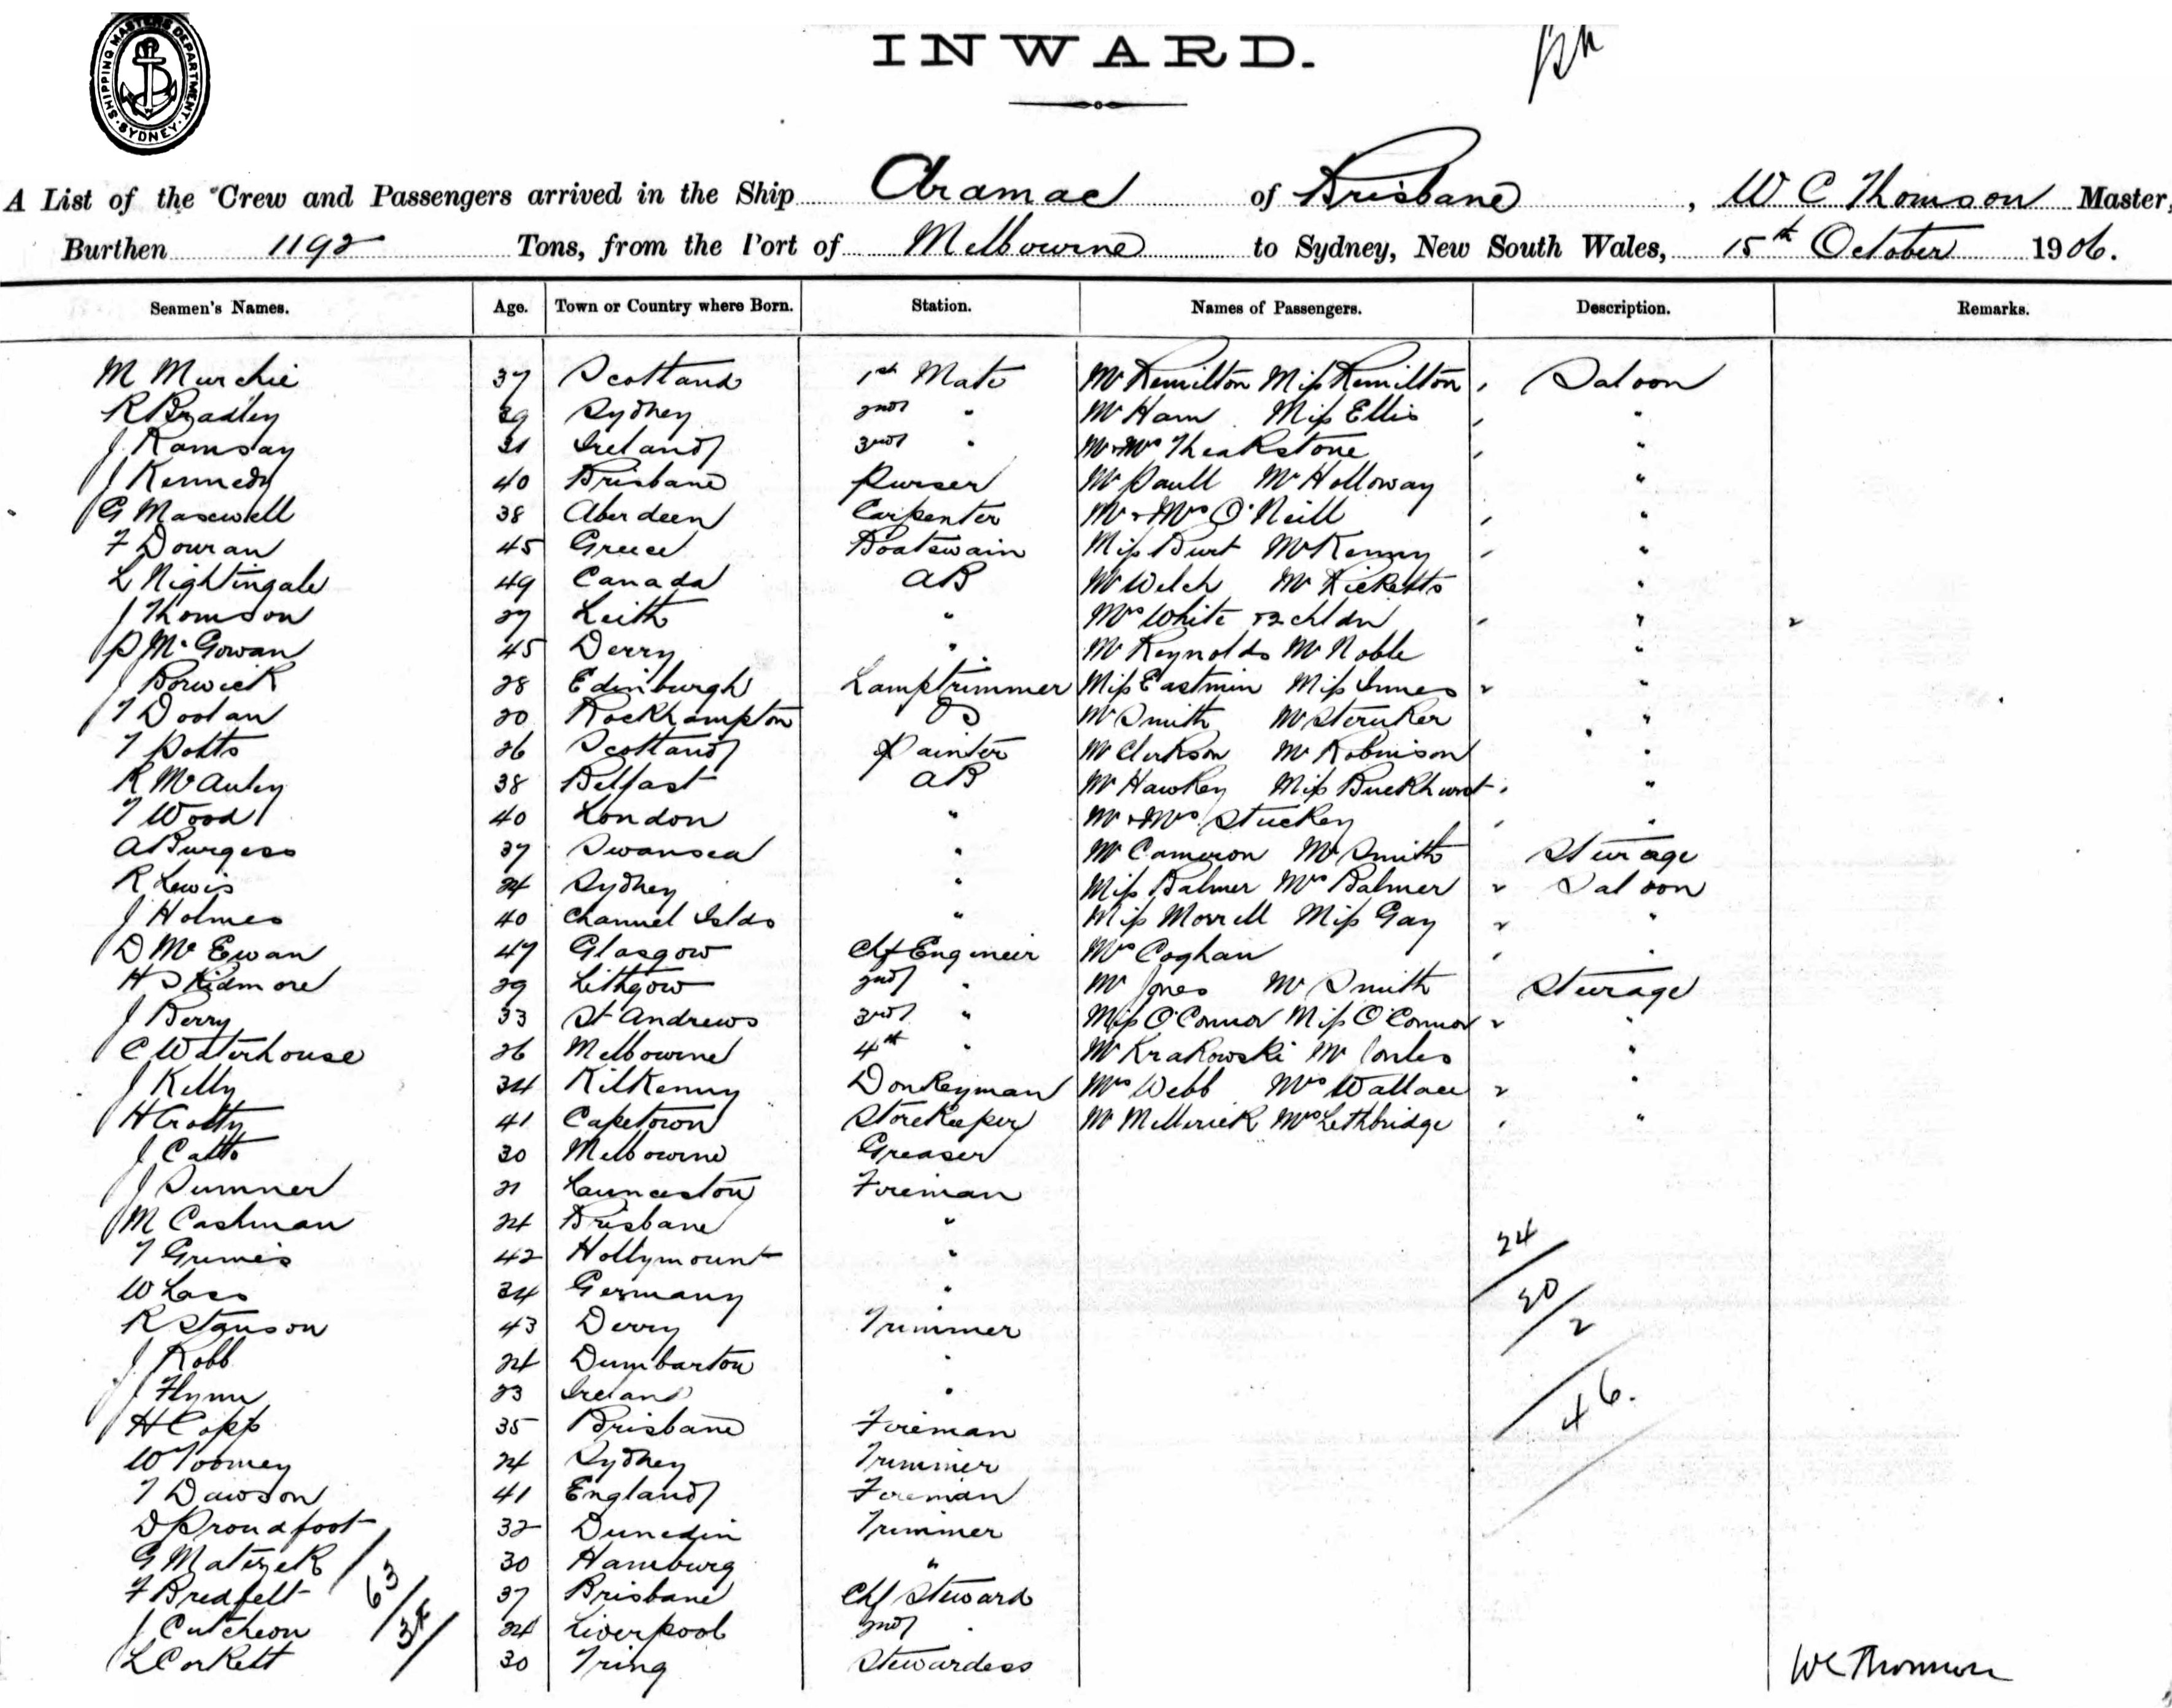 SHIPPING MASTERS DEPARTMENT · SYDNEY ·
INWARD.
A List of the Crew and Passengers arrived in the Ship Aramac of Brisbane, W C Thomson Master,
Burthen 1192 Tons, from the Port of Melbourne to Sydney, New South Wales, 15th October 1906.
Seamen's Names. Age. Town or Country where Born. Station. Names of Passengers. Description. Remarks.
M Murchie 37 Scotland 1st Mate Mr Hemilton Miss Hemilton Saloon
R Bradley 29 Sydney 2nd " Mr Ham Miss Ellis "
J Ramsay 31 Ireland 3rd " Mr & Mrs Theakstone "
J Kennedy 40 Brisbane Purser Mr Paull Mr Holloway "
G Maxwell 38 Aberdeen Carpenter Mr & Mrs O'Neill "
F Douran 45 Greece Boatswain Miss Burt Mr Kenny "
L Nightingale 49 Canada AB Mr Welch Mr Ricketts "
J Thomson 27 Leith " Mrs White & 2 chldn "
P McGowan 45 Derry " Mr Reynolds Mr Noble "
J Borwick 28 Edinburgh Lamptrimmer Miss Eastmin Miss Innes "
T Doolan 20 Rockhampton OS Mr Smith "
T Potts 26 Scotland Painter Mr Clerkson Mr Robinson "
R McAuley 38 Belfast AB Mr Hawkey Miss Buckhurst "
T Wood 40 London " Mr & Mrs Stuckey "
A Burgess 37 Swansea " Mr Cameron Mr Smith Steerage
R Lewis 24 Sydney " Miss Balmer Mrs Balmer Saloon
J Holmes 40 Channel Islds " Miss Morrell Miss Gay "
D McEwan 47 Glasgow Chf Engineer Mrs Coghan "
H Skidmore 29 Lithgow 2nd " Mr Jones Mr Smith Steerage
J Berry 33 St Andrews 3rd " Miss O'Connor Miss O'Connor "
C Waterhouse 26 Melbourne 4th " Mr Krakowski Mr "
J Kelly 34 Kilkenny Donkeyman Mrs Webb Mrs Wallace "
H Crotty 41 Capetown Storekeeper Mr Mrs Lethbridge "
J Catto 30 Melbourne Greaser
J Sumner 21 Launceston Fireman
M Cashman 24 Brisbane "
T Grimes 42 Hollymount "
W Lass 34 Germany "
R 43 Derry Trimmer
J Robb 24 Dumbarton "
J Flynn 23 Ireland "
H Copp 35 Brisbane Fireman
W Toomey 24 Sydney Trimmer
T Dawson 41 England Fireman
D Proudfoot 32 Dunedin Trimmer
G Matezek 30 Hamburg "
F Bredfelt 37 Brisbane Chf Steward
J Cutcheon 24 Liverpool 2nd "
L Corkett 30 Tring Stewardess
24
20
2
46.
63
W C Thomson